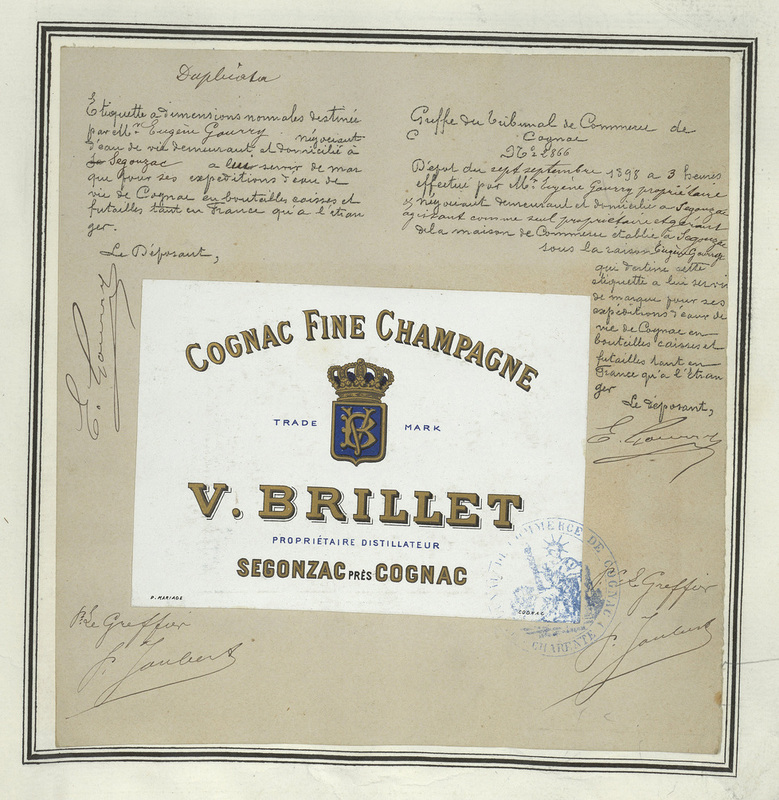 Duplicata
Etiquette a dimensions normales destinée
par Mr. Eugène Gourry négociant
d'eau de vie demeurant et domicilié à
Segonzac a lui servir de mar
que pour ses expéditions d'eau de
vie de Cognac en bouteilles caisses et
futailles tant en France qu'a l'étran
ger.
Le Déposant,
E. Gourry
Greffe du Tribunal de Commerce de
Cognac
No. 2866
Dépot du sept septembre 1898 a 3 heures
effectué par Mr. Eugène Gourry propriétaire
négociant demeurant et domicilié a Segonzac
agissant comme seul propriétaire et gérant
de la maison de Commerce établie à Segonzac
sous la raison Eugène Gourry
qui destine cette
étiquette a lui servir
de marque pour ses
expéditions d'eaux de
vie de Cognac en
bouteilles caisses et
futailles tant en
France qu'a l'étran
ger
Le déposant,
E. Gourry
COGNAC FINE CHAMPAGNE
TRADE MARK
V. BRILLET
PROPRIÉTAIRE DISTILLATEUR
SEGONZAC PRÈS COGNAC
P. MARIAGE
COGNAC
COMMERCE DE COGNAC
CHARENTE
Pr. Le Greffier
P. Joubert
Pr. Le Greffier
P. Joubert